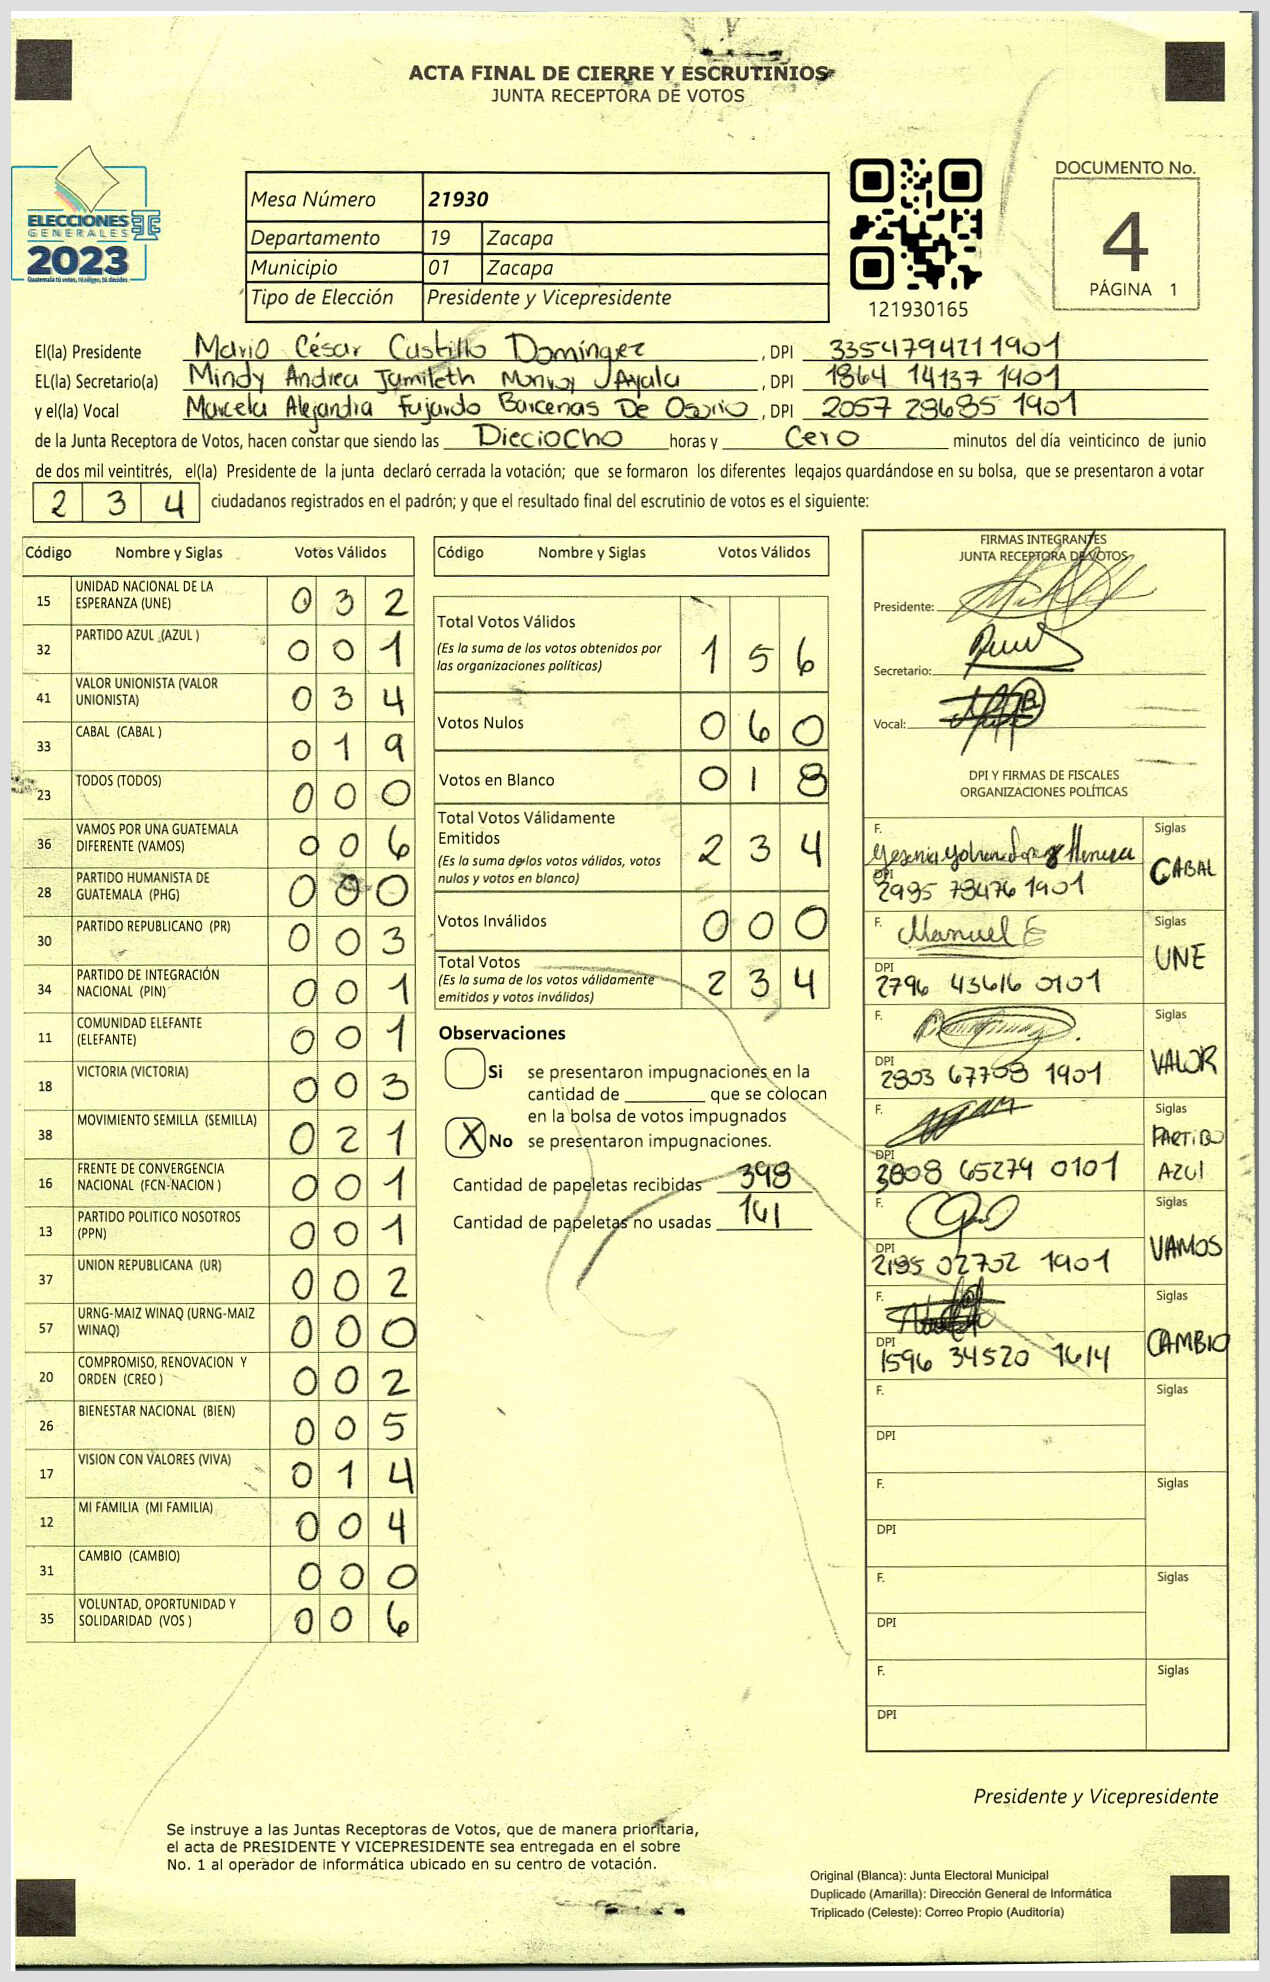 ACTA FINAL DE CIERRE Y ESCRUTINIOS
JUNTA RECEPTORA DE VOTOS
ELECCIONES
GENERALES
2023
Guatemala tú votas, tú eliges, tú decides
Mesa Número 21930
Departamento 19 Zacapa
Municipio 01 Zacapa
Tipo de Elección Presidente y Vicepresidente
121930165
DOCUMENTO No.
4
PÁGINA 1
El(la) Presidente Mario César Castillo Domíngez, DPI 3354794211901
EL(la) Secretario(a) Mindy Andrea Jamileth Monroy Ayala, DPI 1864 14137 1901
y el(la) Vocal Marcela Alejandra Fajardo Barcenas De Osorio, DPI 2057 28685 1901
de la Junta Receptora de Votos, hacen constar que siendo las Dieciocho horas y Cero minutos del día veinticinco de junio
de dos mil veintitrés, el(la) Presidente de la junta declaró cerrada la votación; que se formaron los diferentes legajos guardándose en su bolsa, que se presentaron a votar
234 ciudadanos registrados en el padrón; y que el resultado final del escrutinio de votos es el siguiente:
Código Nombre y Siglas Votos Válidos
15 UNIDAD NACIONAL DE LA ESPERANZA (UNE) 032
32 PARTIDO AZUL (AZUL ) 001
41 VALOR UNIONISTA (VALOR UNIONISTA) 034
33 CABAL (CABAL ) 019
23 TODOS (TODOS) 000
36 VAMOS POR UNA GUATEMALA DIFERENTE (VAMOS) 006
28 PARTIDO HUMANISTA DE GUATEMALA (PHG) 000
30 PARTIDO REPUBLICANO (PR) 003
34 PARTIDO DE INTEGRACIÓN NACIONAL (PIN) 001
11 COMUNIDAD ELEFANTE (ELEFANTE) 001
18 VICTORIA (VICTORIA) 003
38 MOVIMIENTO SEMILLA (SEMILLA) 021
16 FRENTE DE CONVERGENCIA NACIONAL (FCN-NACION ) 001
13 PARTIDO POLITICO NOSOTROS (PPN) 001
37 UNION REPUBLICANA (UR) 002
57 URNG-MAIZ WINAQ (URNG-MAIZ WINAQ) 000
20 COMPROMISO, RENOVACION Y ORDEN (CREO ) 002
26 BIENESTAR NACIONAL (BIEN) 005
17 VISION CON VALORES (VIVA) 014
12 MI FAMILIA (MI FAMILIA) 004
31 CAMBIO (CAMBIO) 000
35 VOLUNTAD, OPORTUNIDAD Y SOLIDARIDAD (VOS ) 006
Código Nombre y Siglas Votos Válidos
Total Votos Válidos 156
(Es la suma de los votos obtenidos por
las organizaciones políticas)
Votos Nulos 060
Votos en Blanco 018
Total Votos Válidamente
Emitidos 234
(Es la suma de los votos válidos, votos
nulos y votos en blanco)
Votos Inválidos 000
Total Votos 234
(Es la suma de los votos válidamente
emitidos y votos inválidos)
Observaciones
Si se presentaron impugnaciones en la
cantidad de ________ que se colocan
en la bolsa de votos impugnados
X No se presentaron impugnaciones.
Cantidad de papeletas recibidas 398
Cantidad de papeletas no usadas 161
FIRMAS INTEGRANTES
JUNTA RECEPTORA DE VOTOS
Presidente:
Secretario:
Vocal:
DPI Y FIRMAS DE FISCALES
ORGANIZACIONES POLÍTICAS
F. Siglas
DPI 2995 78476 1901 CABAL
F. Manuel E Siglas
DPI 2796 43616 0101 UNE
F. Siglas
DPI 2303 67703 1901 VALOR
F. Siglas
DPI 3808 65279 0101 PARTIDO AZUl
F. Siglas
DPI 2195 02702 1901 VAMOS
F. Siglas
DPI 1596 34520 1614 CAMBIO
F. Siglas
DPI
F. Siglas
DPI
F. Siglas
DPI
F. Siglas
DPI
Presidente y Vicepresidente
Se instruye a las Juntas Receptoras de Votos, que de manera prioritaria,
el acta de PRESIDENTE Y VICEPRESIDENTE sea entregada en el sobre
No. 1 al operador de informática ubicado en su centro de votación.
Original (Blanca): Junta Electoral Municipal
Duplicado (Amarilla): Dirección General de Informática
Triplicado (Celeste): Correo Propio (Auditoría)